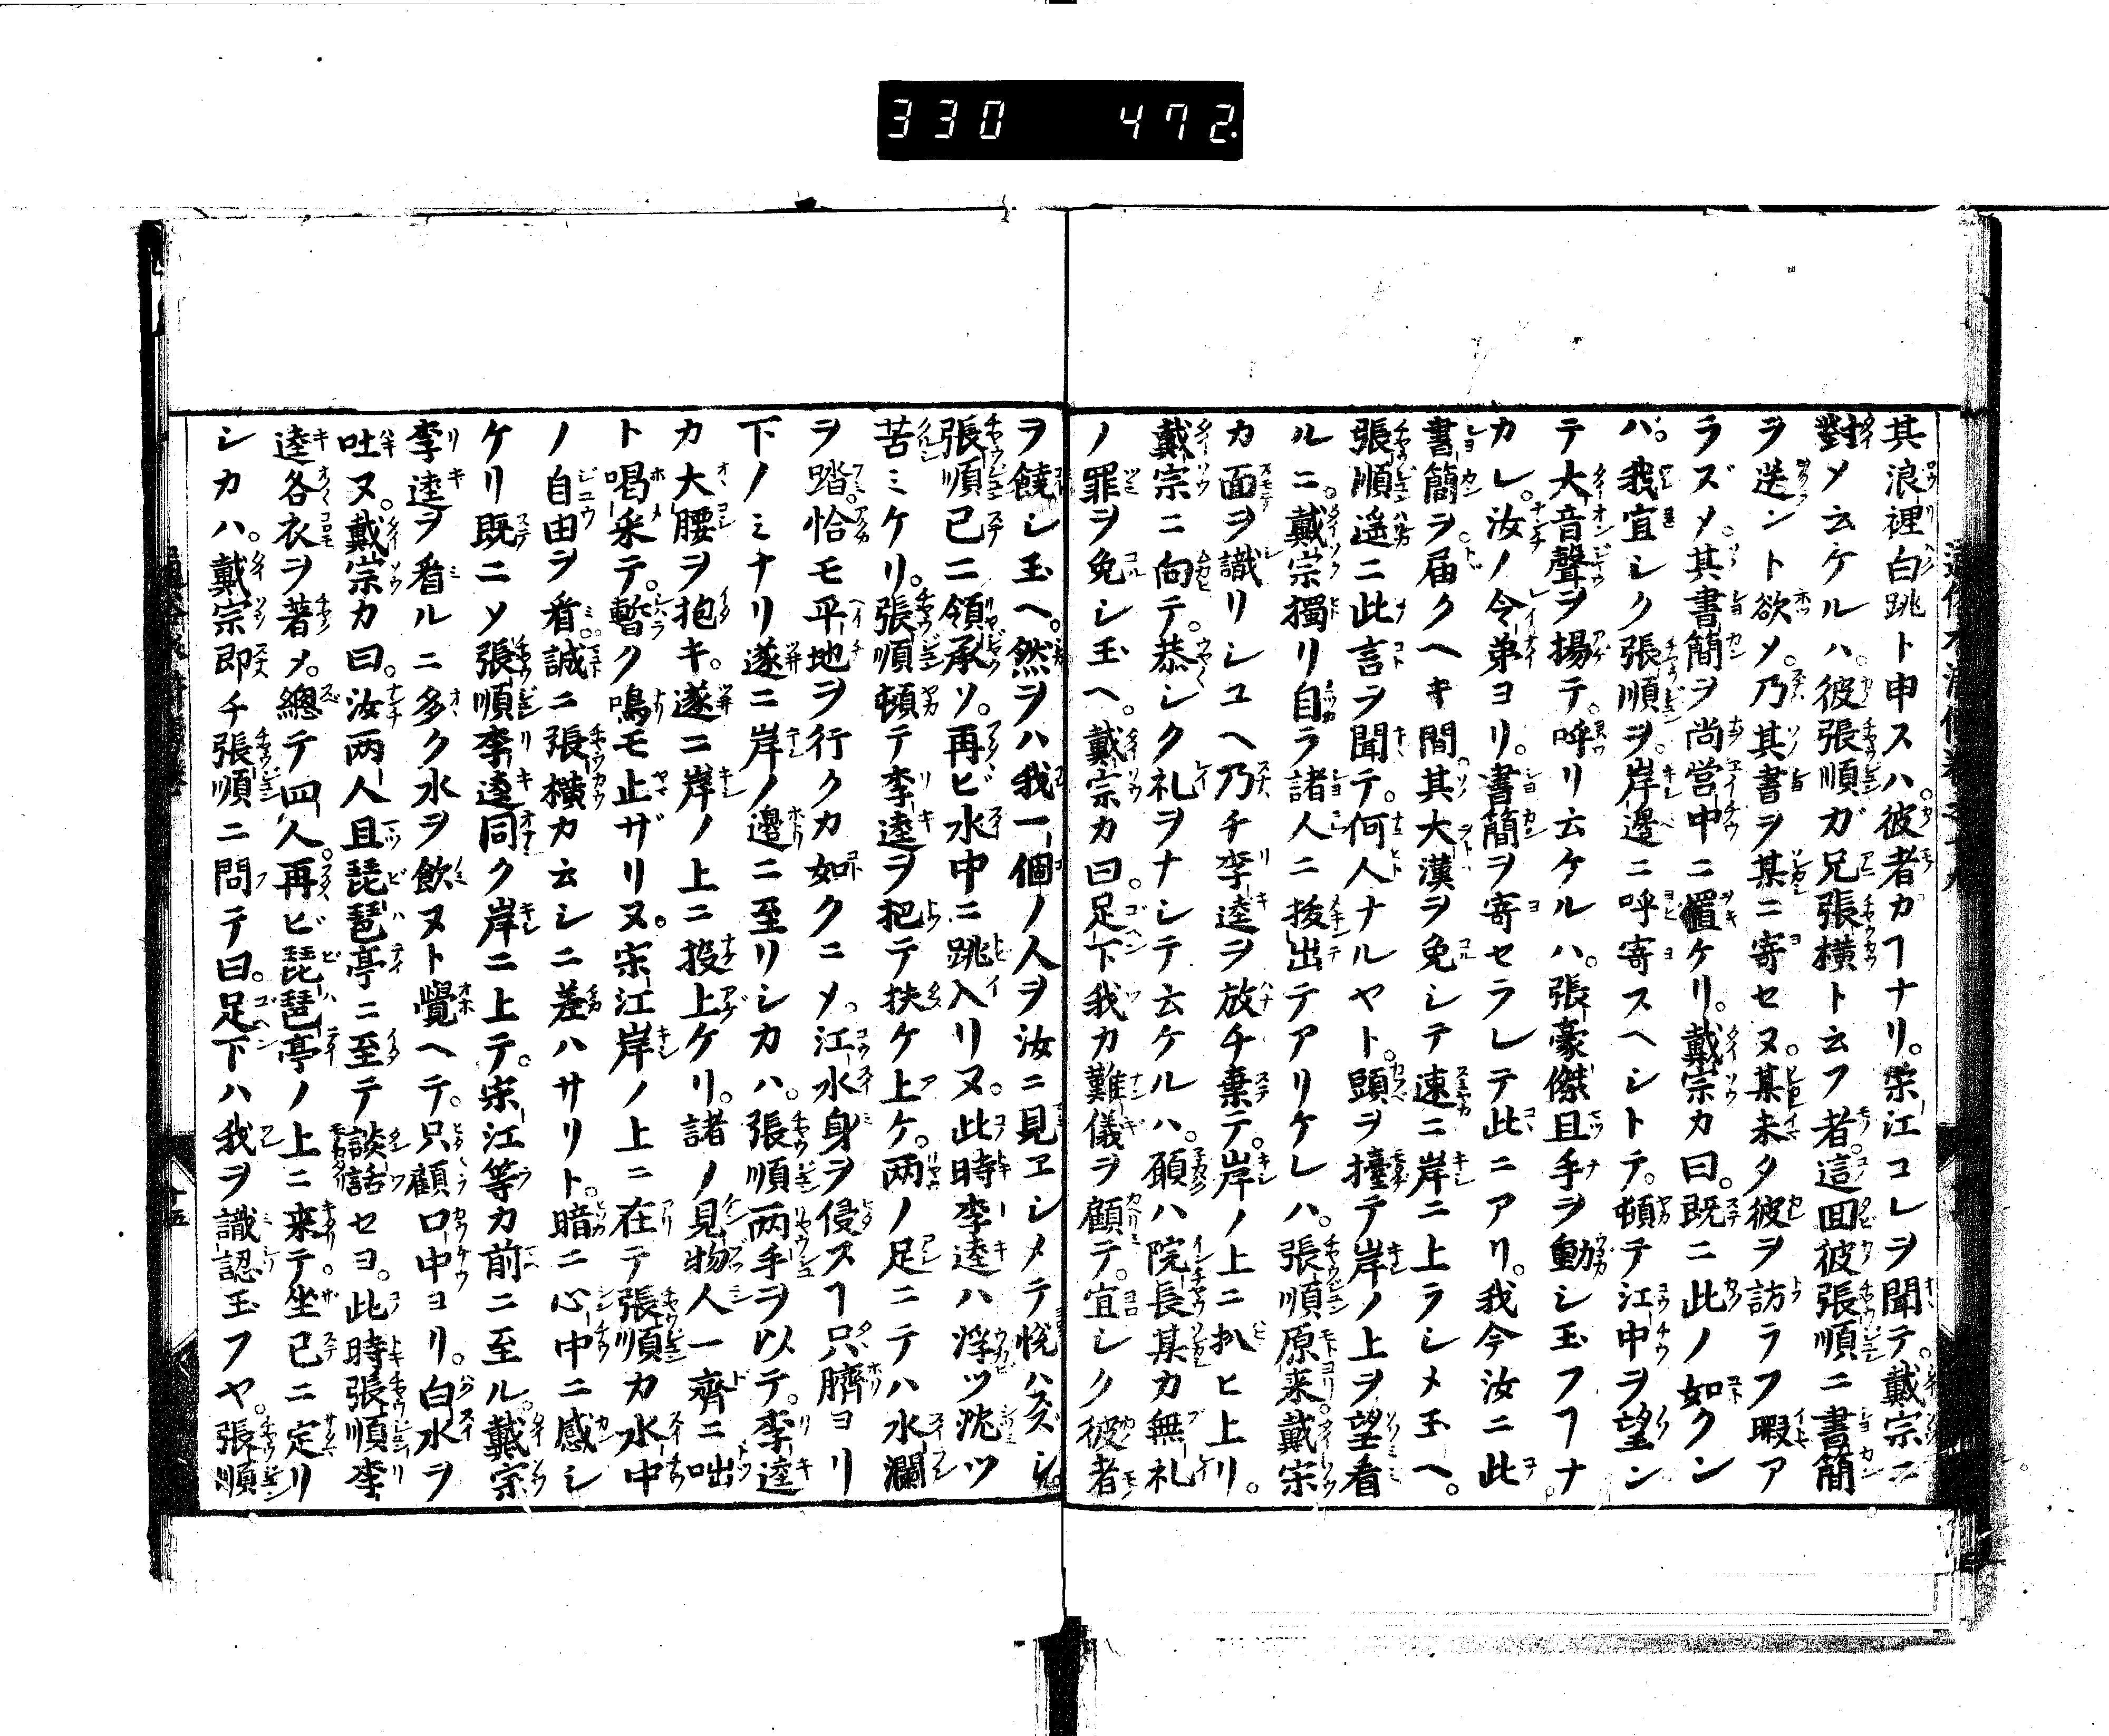 330 472.
其浪裡白跳ト申スハ。彼者カヿナリ。宋江コレヲ聞テ。戴宗ニ
對メ云ケルハ。彼張順ガ兄張横ト云フ者。這回彼張順ニ書簡
ヲ送ント欲メ。乃其書ヲ某ニ寄セヌ。某未タ彼ヲ訪ラフ暇ア
ラズメ。其書簡ヲ尚営中ニ置ケリ。戴宗カ曰。既ニ此ノ如クン
ハ。我宜シク張順ヲ。岸邊ニ呼寄スヘシトテ。頓テ江中ヲ望ン
テ大音聲ヲ揚テ。呼リ云ケルハ。張豪傑且手ヲ動シ玉フヿナ
カレ。汝ノ令弟ヨリ。書簡ヲ寄セラレテ此ニアリ。我今汝ニ此
書簡ヲ届クヘキ間。其大漢ヲ免シテ速ニ岸ニ上ラシメ玉ヘ。
張順遥ニ此言ヲ聞テ。何人ナルヤト。頭ヲ擡テ岸ノ上ヲ望看
ルニ。戴宗獨リ自ラ諸人ニ抜出テアリケレハ。張順原来。戴宗
カ面ヲ識リシユヘ乃チ李逵ヲ放チ棄テ。岸ノ上ニ扒ヒ上リ。
戴宗ニ向テ。恭シク礼ヲナシテ云ケルハ。願ハ院長某カ無礼
ノ罪ヲ免シ玉ヘ。戴宗カ曰。足下我カ難儀ヲ顧テ。宜シク彼者
ヲ饒シ玉ヘ。然ヲハ我一個ノ人ヲ汝ニ見ヱシメテ悦ハスベシ。
張順已ニ領承ソ。再ビ水中ニ跳入リヌ。此時李逵ハ浮ツ沈ツ
苦ミケリ。張順頓テ李逵ヲ把テ扶ケ上ケ。两ノ足ニテハ水瀾
ヲ踏。恰モ平地ヲ行クカ如クニメ。江水身ヲ侵スヿ只臍ヨリ
下ノミナリ遂ニ岸ノ邊ニ至リシカハ。張順两手ヲ以テ。李逵
カ大腰ヲ抱キ。遂ニ岸ノ上ニ投上ケリ。諸ノ見物人一齊ニ咄
ト喝采テ。暫ク鳴モ止ザリヌ。宋江岸ノ上ニ在テ張順カ水中
ノ自由ヲ看。誠ニ張横カ云シニ差ハサリト。暗ニ心中ニ感シ
ケリ既ニソ張順李逵同ク岸ニ上テ。宋江等カ前ニ至ル。戴宗
李逵ヲ看ルニ多ク水ヲ飲ヌト覺ヘテ。只顧口中ヨリ。白水ヲ
吐ヌ。戴宗カ曰。汝两人且琵琶亭ニ至テ談話セヨ。此時張順李
逵各衣ヲ著メ。總テ四人。再ビ琵琶亭ノ上ニ来テ。坐已ニ定リ
シカハ。戴宗即チ張順ニ問テ曰。足下ハ我ヲ識認玉フヤ。張順
十五